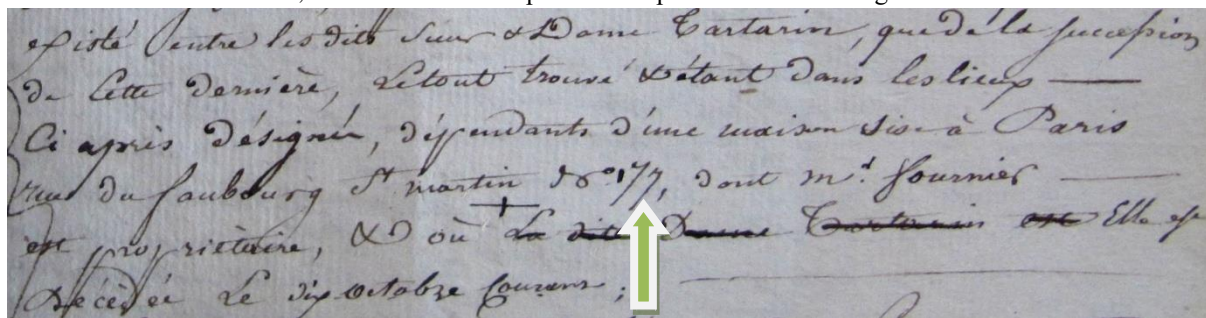 existé entre les dits Sieur & Dame Tartarin, que de la succession
de Cette Dernière, Le tout trouvé & étant Dans les lieux —
Ci après Désignés, dépendants d'une maison sise à Paris
rue du faubourg St martin No. 177, dont mr. fournier —
est propriétaire, & où La dite Dame Tartarin est Elle est
Décédée Le dix octobre Courant ;